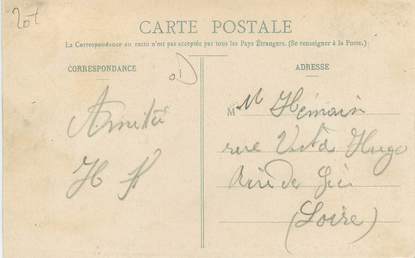 Lot
CARTE POSTALE
La Correspondance au recto n'est pas acceptée par tous les Pays Étrangers. (Se renseigner à la Poste.)
CORRESPONDANCE
ADRESSE
Amitié
H
M M Hémain
rue Victor Hugo
Rive de Gier
(Loire)